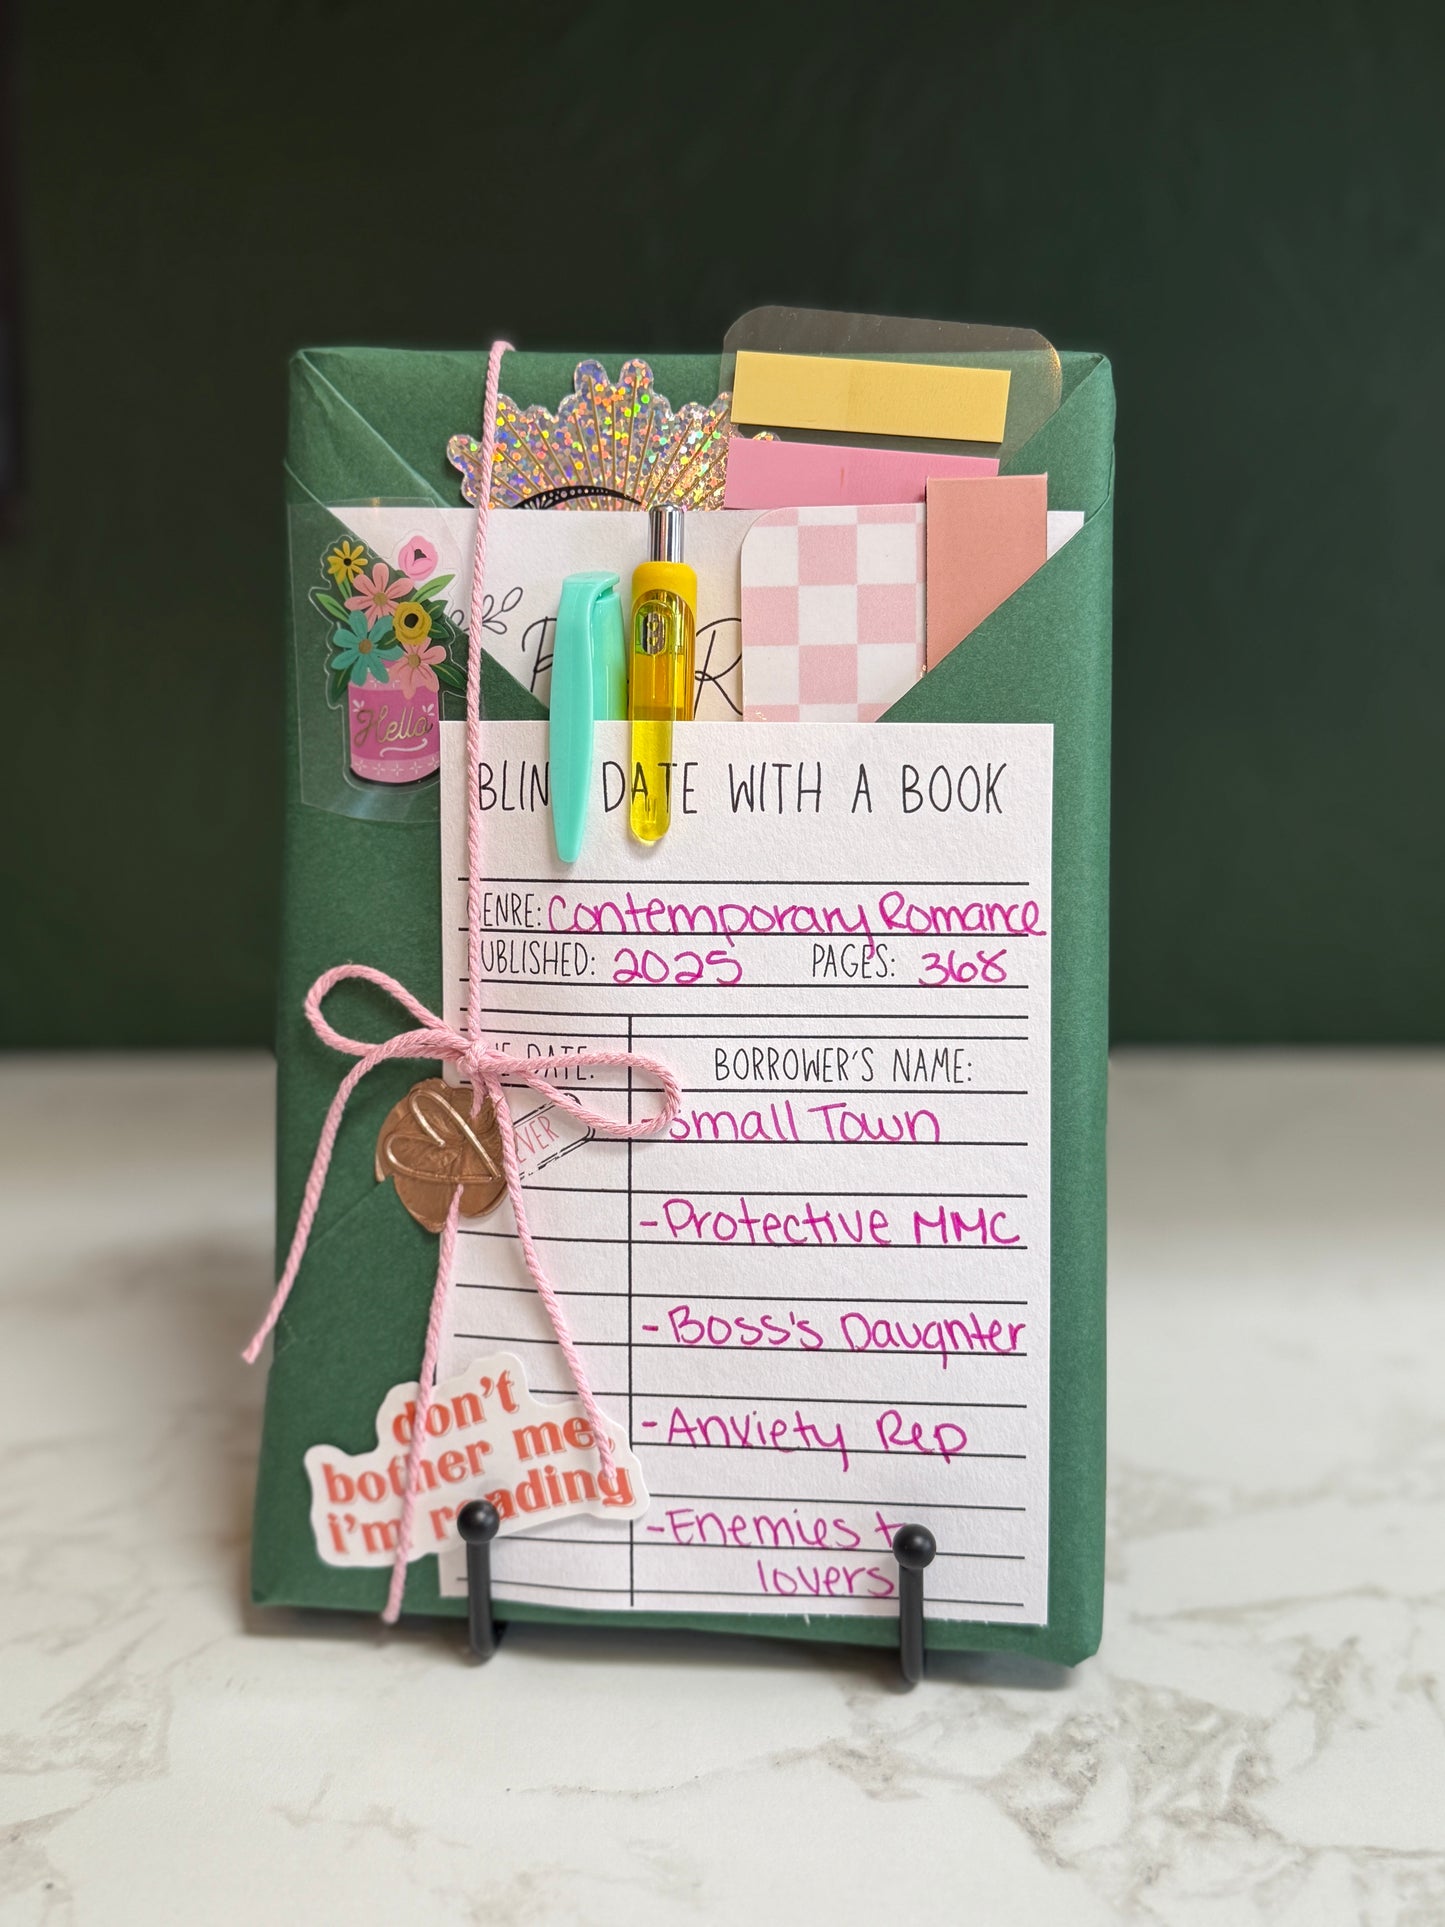 R
Hello
BLIN DATE WITH A BOOK
ENRE: Contemporary Romance
UBLISHED: 2025 PAGES: 368
E DATE: BORROWER'S NAME:
VER
-Small Town
-Protective MMC
-Boss's Daughter
-Anxiety Rep
-Enemies t
lovers
don't
bother me,
i'm reading